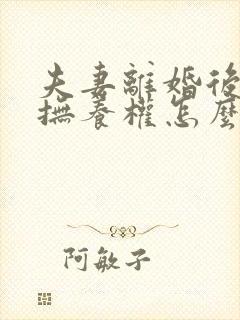 夫妻離婚後
撫養權怎麼
阿敏子